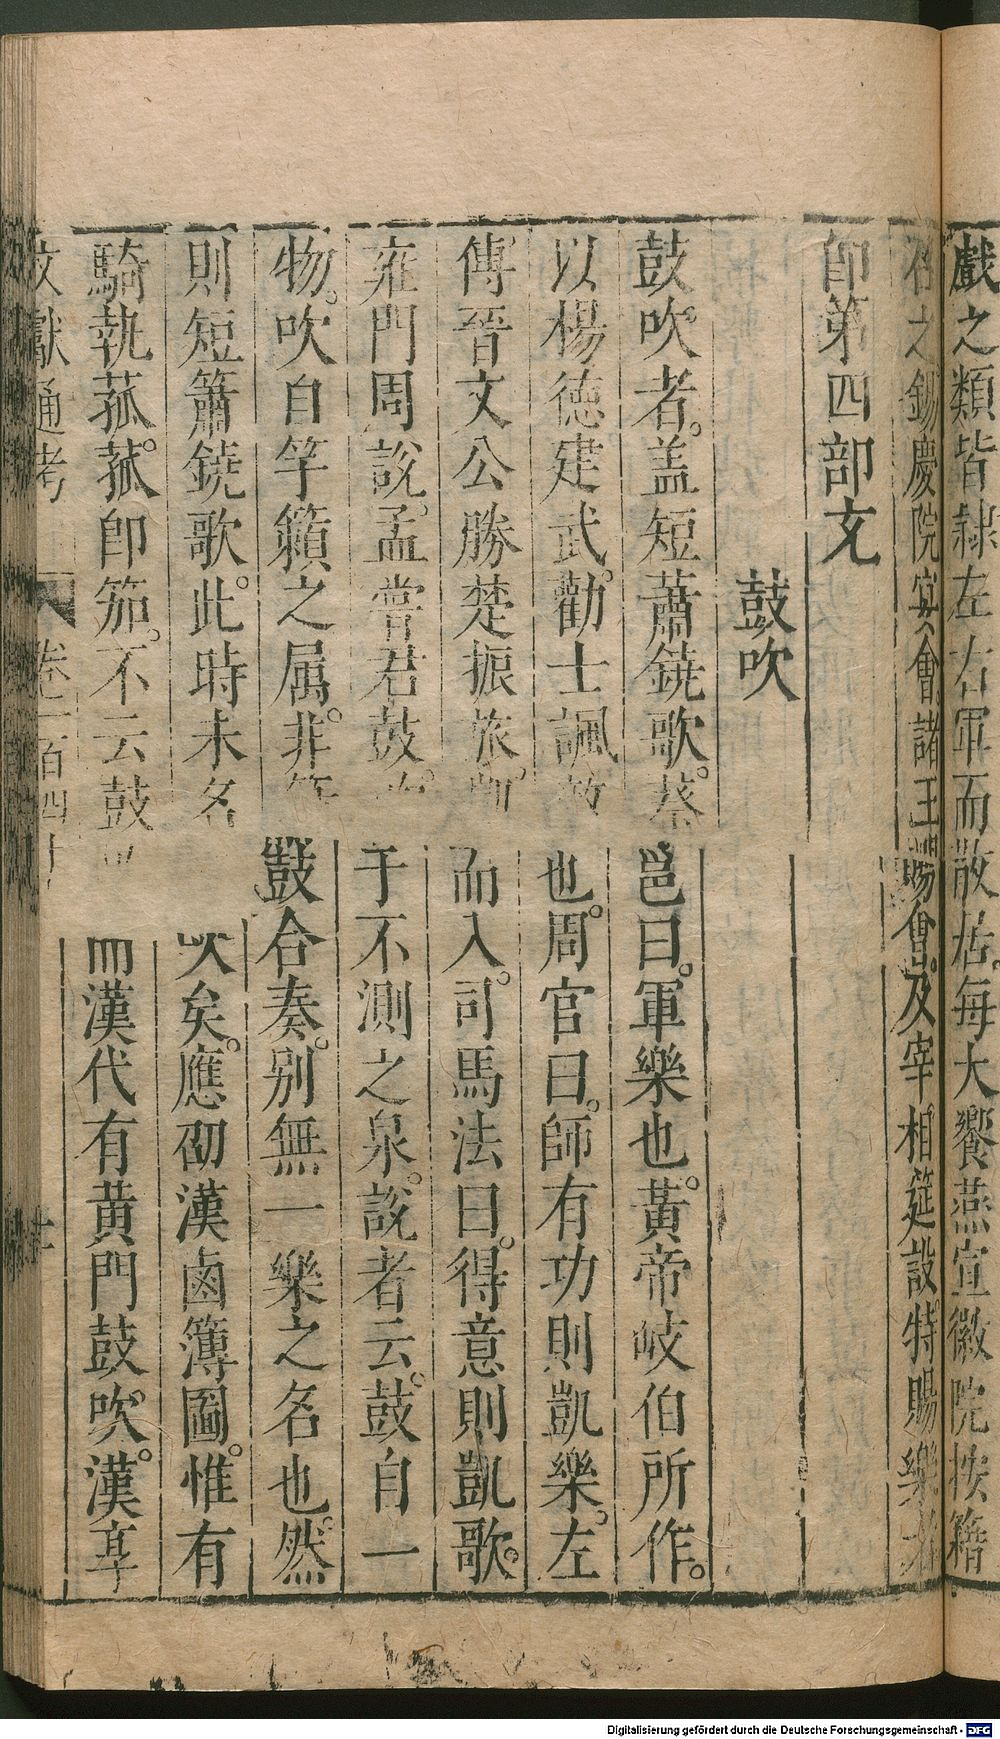 戲之類皆隸左右軍而散居每大饗燕宣徽院按籍
之錫慶院宴會諸王賜會及宰相筵設特賜樂
即第四部文
鼓吹
鼓吹者盖短蕭鐃歌蔡邕曰軍樂也黃帝岐伯所作
以楊德建武勸士諷敵也周官曰師有功則凱樂左
傳晉文公勝楚振旅凱而入司馬法曰得意則凱歌
雍門周說孟嘗君鼓吹于不測之泉說者云鼓自一
物吹自竽籟之属非簫鼓合奏别無一樂之名也然
則短簫鐃歌此時未名吹矣應劭漢鹵簿圖惟有
騎執菰菰即笳不云鼓吹而漢代有黄門鼓吹漢享
文獻通考 卷一百四十 廿
Digitalisierung gefördert durch die Deutsche Forschungsgemeinschaft - DFG